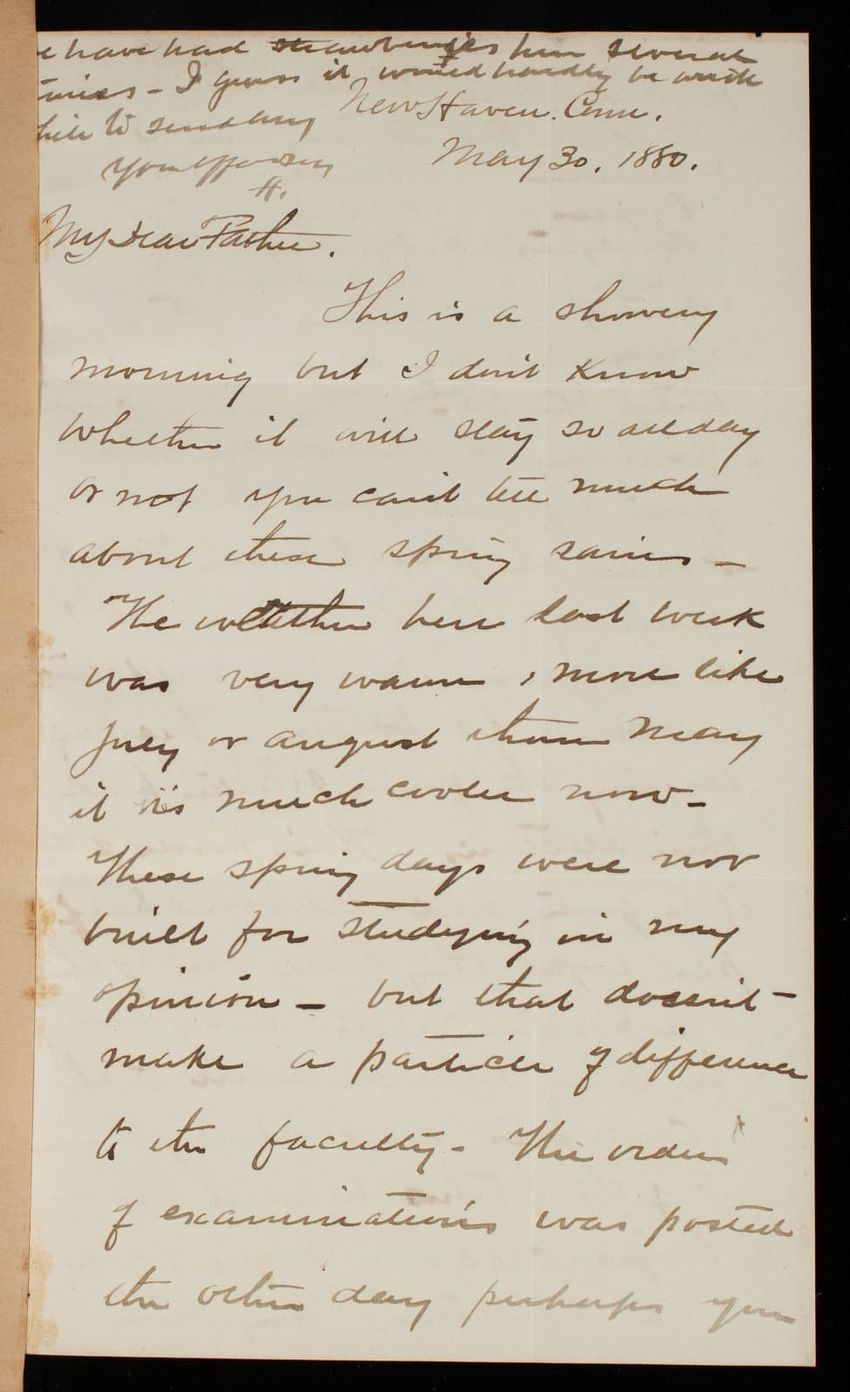 e have had strawberries here several
times - I guess it would hardly be worth
while to send any
Your aff son
H.
New Haven. Conn.
May 30. 1880.
My Dear Father.
This is a showery
morning but I don't know
whether it will stay so all day
or not you can't tell much
about these spring rains -
The weather here last week
was very warm, more like
July or august than May
it is much cooler now -
These spring days were not
built for studying in my
opinion - but that doesn't
make a particle of difference
to the faculty - The order
of examinations was posted
the other day perhaps you